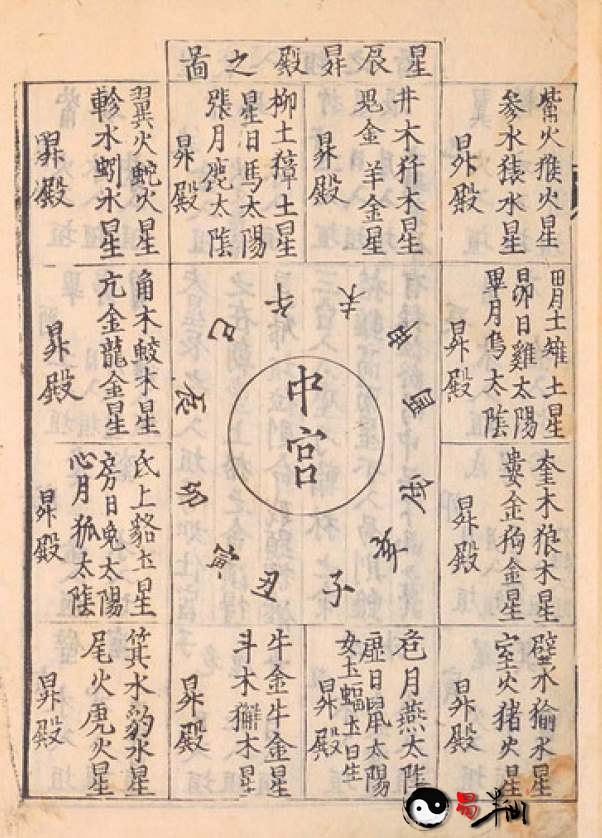 星辰昇殿之啚
觜火猴火星
參水猿水星
昇殿
井木犴木星
鬼金羊金星
昇殿
柳土獐土星
星日馬太陽
張月鹿太陰
昇殿
翼火蛇火星
軫水蚓水星
昇殿
胃土雉土星
昴日雞太陽
畢月烏太陰
昇殿
奎木狼木星
婁金狗金星
昇殿
壁水㺄水星
室火猪火星
昇殿
危月燕太陰
虛日鼠太陽
女土蝠土日生
昇殿
牛金牛金星
斗木獬木星
昇殿
箕水豹水星
尾火虎火星
昇殿
氐土貉土星
房日兔太陽
心月狐太陰
昇殿
角木蛟木星
亢金龍金星
昇殿
中宮
子
丑
寅
卯
辰
巳
午
未
申
酉
戌
亥
易半仙